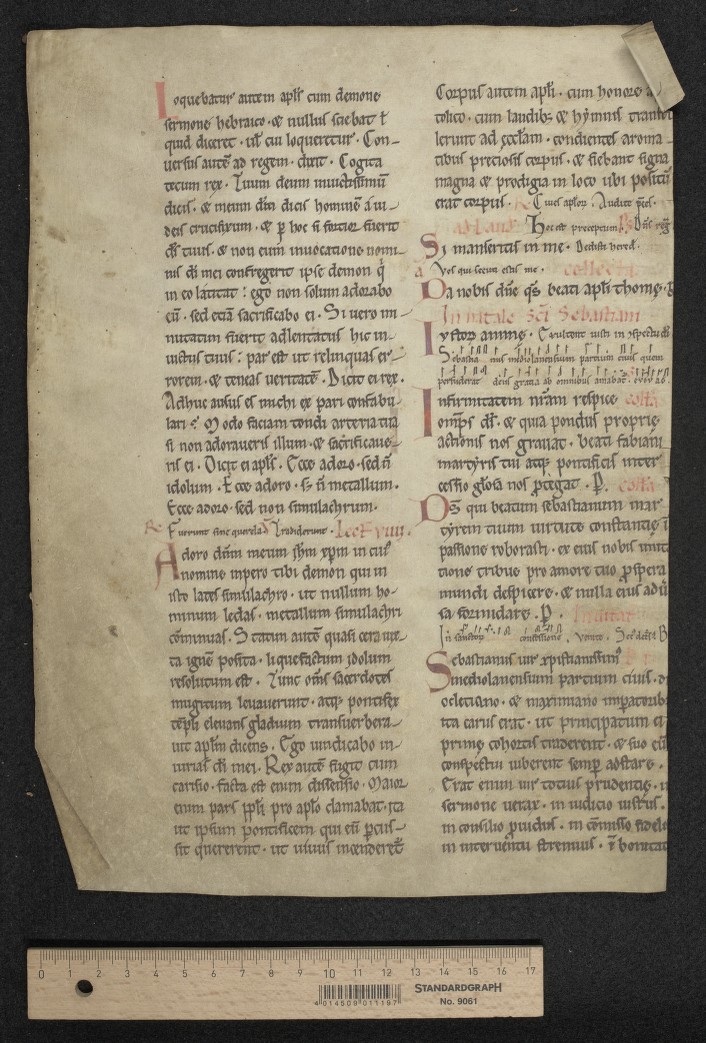 Loquebatur autem apl's cum demone
sermone hebraico · & nullus sciebat ł
quid diceret · uł cui loqueretur · Con-
uersus autē ad regem · dixit · Cogita
tecum rex · Tuum deum inuictissimū
dicis · & meum dm̄ dicis hominē a iu-
deis crucifixum · & p hoc si fortior fuerit
ds̄ tuus · & non eum inuocatione nomi-
nis di mei confregerit ipse demon q
in eo latitat : ego non solum adorabo
eū · sed etiā sacrificabo ei · Si uero im-
mutatum fuerit ad
iustus tuus : par est ut relinquas er-
rorem · & teneas ueritatē · Dicit ei rex ·
Adhuc ausus es michi ex pari confabu-
lari · Modo faciam tondi arteria tua
si non adoraueris illum · & sacrificaue-
ris ei · Dicit ei apl's · Ecce adoro · sed n̄
idolum · Ecce adoro · s; n̄ metallum ·
Ecce adoro · sed non simulachrum ·
Fuerunt sine querela Tradiderunt · Lect viiii.
Adoro dn̄m meum ihm xpm in cui'
nomine inpero tibi demon qui in
isto lates simulachro · ut nullum ho-
minum ledas · metallum simulachri
cōminuas · Statim autē quasi cera iux-
ta ignē posita · liquefactum idolum
resolutum est · Tunc oms sacerdotes
mugitum leuauerunt · atq; pontifex
tēpli eleuans gladium transuerbera-
uit aplm dicens · Ego uindicabo in-
iurias di mei · Rex autē fugit cum
carisio · facta est enim dissensio · Maior
enim pars ppli pro aplo clamabat · ita
ut ipsum pontificem qui eū pcus-
sit quererent · ut uiuus incenderet
Corpus autem apli · cum honore
tolico · cum laudib; & hymnis
lerunt ad eccłam · condientes aroma-
tibus preciosis corpus · & fiebant signa
magna & prodigia in loco ubi positū
erat corpus · Ciues aplor · Audite
Hoc est preceptum
Si manseritis in me · Dedisti hered ·
Vos qui secuti estis me · collecta
Da nobis dn̄e qs beati apli thome ·
In natale Sci Sebastiani
ystor anime · Exultent iusti in
Sebastia mediolanensium partium ciuis quem
deus gratia ab omnibus amabat ·
Infirmitatem nr̄am respice collta
omps ds · & quia pondus proprie
actionis nos grauat · beati fabiani
martyris tui atq; pontificis inter
cessio glosa nos ptegat · P. collta
Ds qui beatum sebastianum mar-
tyrem tuum uirtute constantie i
passione roborasti · ex eius nobis
tione tribue pro amore tuo pspera
mundi despicere · & nulla eius adu
sa formidare · P.
Sebastianus uir xpistianissim'
mediolanensium partium ciuis ·
ocletiano · & maximiano impatorib
ita carus erat · ut principatum
prime cohortis traderent · & suo
conspectui iuberent semp adstare ·
Erat enim uir totius prudentie ·
sermone uerax · in iudicio iustus ·
in consilio puidus · in cōmisso fidel
in interuentu strenuus · bonitat
STANDARDGRAPH
No. 9061
0 1 2 3 4 5 6 7 8 9 10 11 12 13 14 15 16 17
4 014509 011197